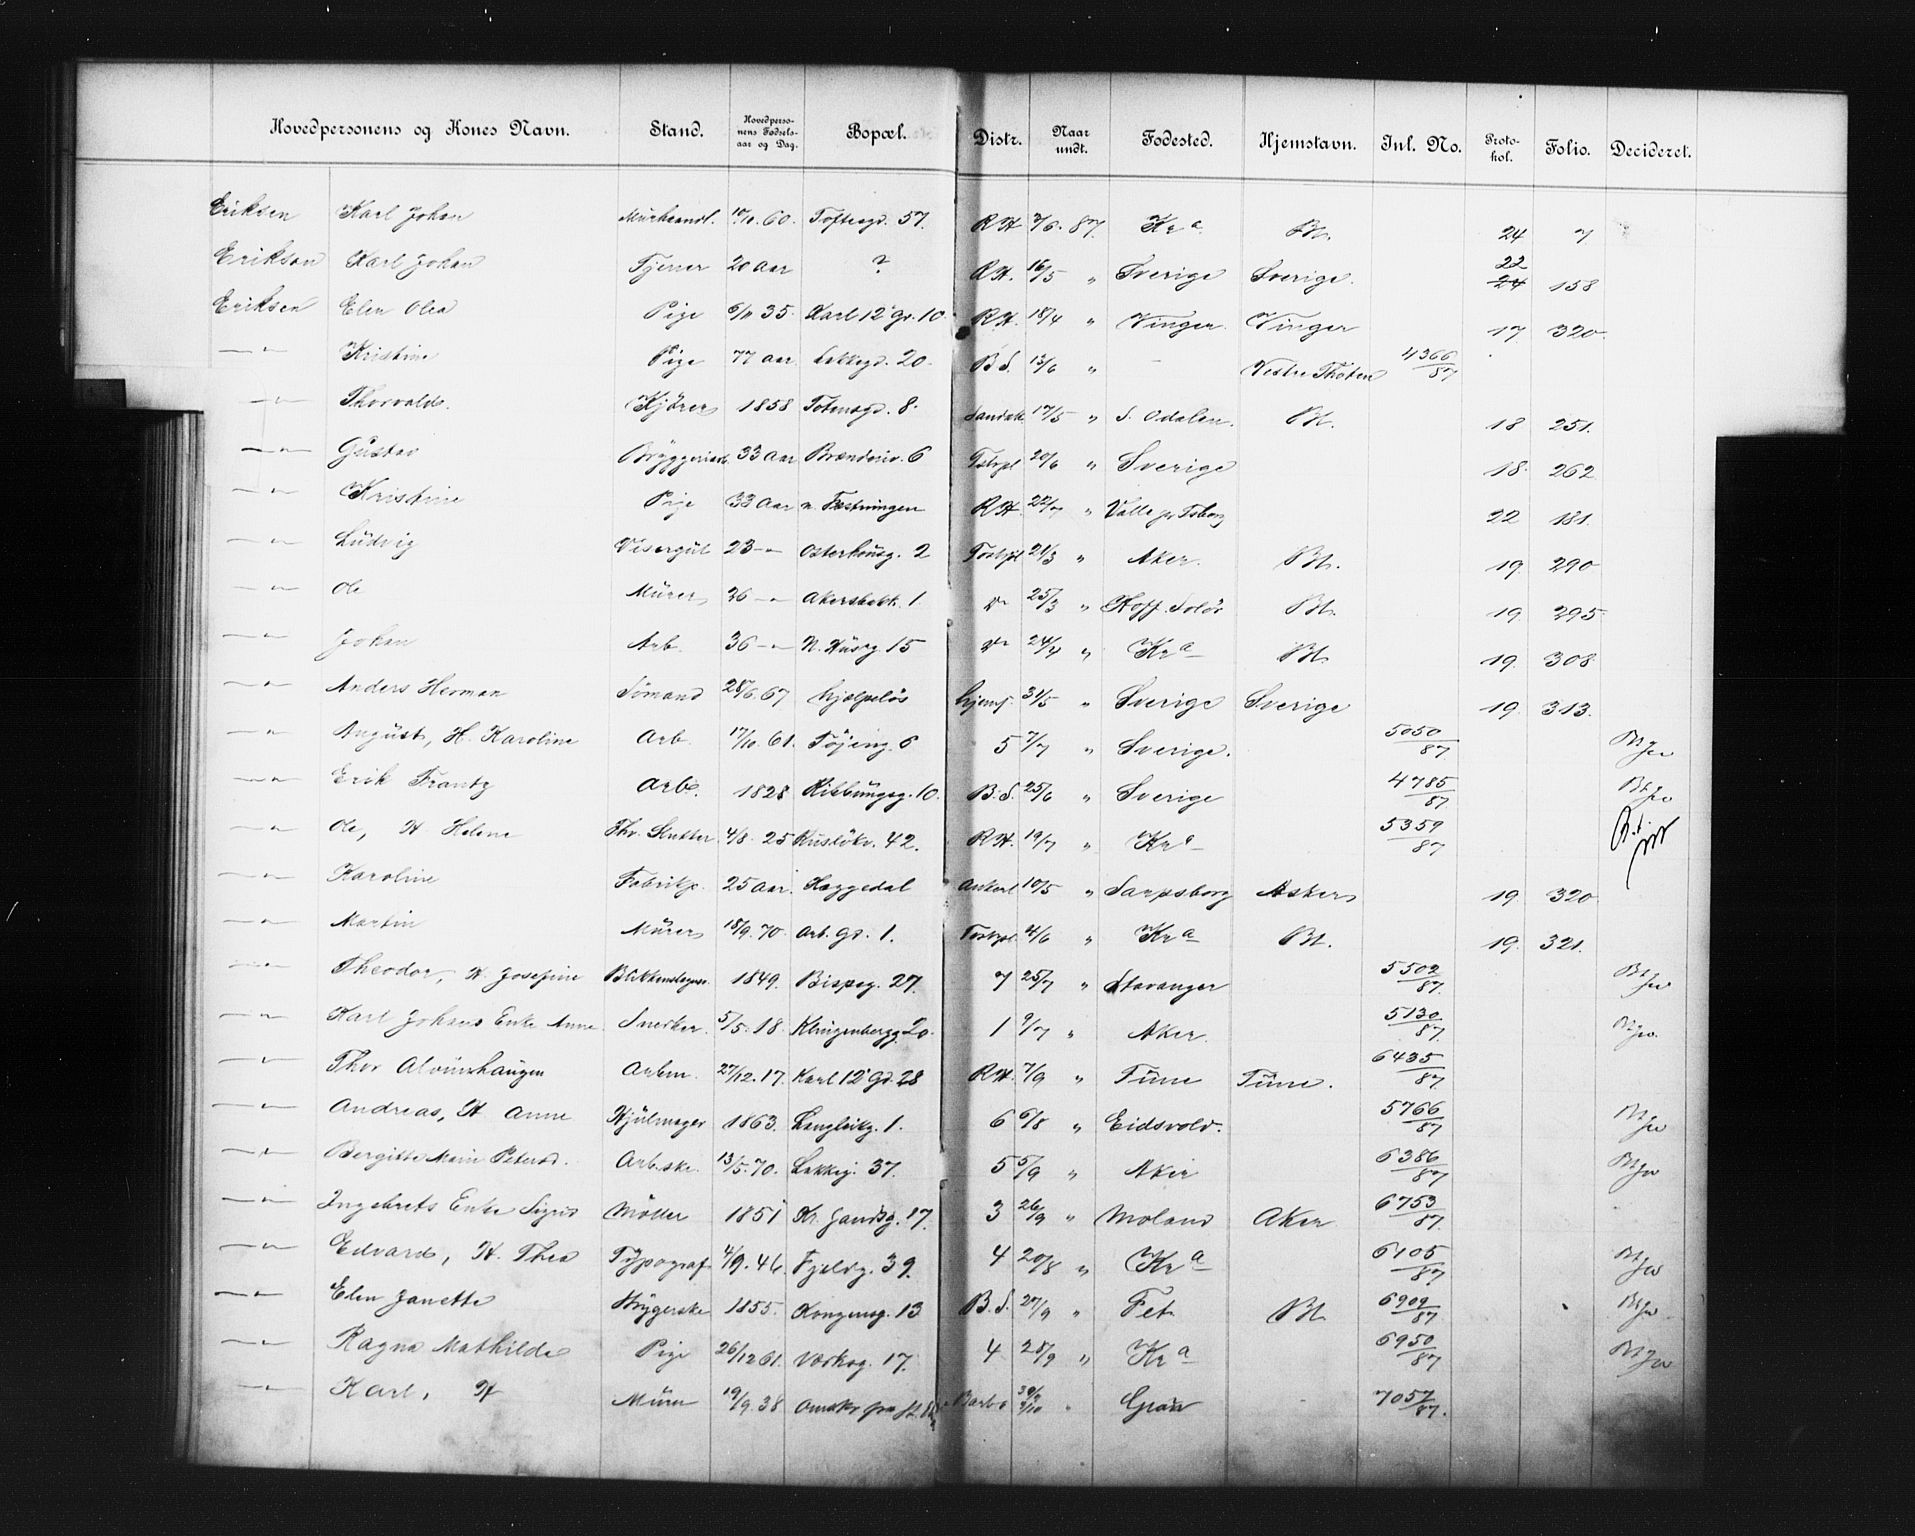 Hovedpersonens og Kones Navn. Stand. Hovedpersonens Fødselsaar og Dag. Bopæl. Distr. Naar undt. Fødested. Hjemstavn. Inl. No. Protokol. Folio. Decideret.
Eriksen Karl Johan 10/10. 60. Toftesgd. 57. RH 3/6. 87. Kra Bt. 24 7
Erikson Karl Johan Tjener 20 aar ? RH. 16/5 " Sverige Sverige. 22 24 158
Eriksen Elen Olea Pige 6/11 35. Karl 12' Gr. 10 RH. 18/4 " Vinger. Vinger 17 320.
—"— Kristine Pige 77 aar Lakkegd. 20. B.S. 13/6 " - Vestre Thoten 4366/87
—"— Thorvald. Kjører 1858 Totensgd. 8. Sandak. 17/5 " S. Odalen. Bt. 18 251.
—"— Gustav 33 aar 6 20/6 " Sverige 18. 262
—"— Kristine Pige 33 aar n. Fæstningen RH. 22/7 " 22 181.
—"— Ludvig Visergut 23 —"— Osterhausg. 2 21/3 " Aker. Bt. 19. 290
—"— Ole Murer 26 —"— Akersbakk. 1. 25/3 " Hoff. Solør Bt. 19. 295.
—"— Johan Arb. 36 —"— 15 24/4 " Kra Bt. 19. 308
—"— Anders Herman Sømand 28/6. 67 hjælpeløs hjemf. 31/5 " Sverige Sverige 19. 313.
—"— August, H. Karoline Arb. 17/10. 61. Tøjeng. 6 5 7/7 " Sverige. 5050/87 Bt
—"— Erik Frantz Arb. 1828 Ribbungsg. 10. B.S. 25/6 " Sverige 4785/87 Bt
—"— Ole, H. Helene 4/8. 25 Rusløkv. 42. RH. 19/7 " Kra 5359/87 B.t.
—"— Karoline Fabrikp. 25 aar. Haggedal Ankerl. 10/5 " Sarpsborg Asker 19. 320.
—"— Martin Murer 18/9. 70. Arb. Gd. 1. 4/6 " Kra Bt. 19. 321.
—"— Theodor, H. Josefine Blikkenslager. 1849. Bispeg. 27. 7 25/7 " Stavanger 5502/87. Bt
—"— Karl Johans Enke Anne Snedker. 5/5. 18. Klingenbergg. 20. 1 9/7 " Aker. 5130/87. Bt
—"— Thor Arbm. 27/12. 17. Karl 12' Gd. 28 RH. 7/9 " Tune Tune. 6435/87.
—"— Andreas, H. Anne Hjulmager 1863. Langleikg. 1. 6 6/8 " Eidsvold. 5766/87 Bt
—"— Bergitte Marie Petersd. Arb.ske. 13/5. 70. Lakkeg. 37. 5 5/9 " Aker 6386/87 Bt
—"— Ingebrets Enke Sigrid Møller 1851 17. 3 26/9 " Moland Aker 6753/87.
—"— Edvard, H. Thea Typograf 4/9. 46. Fjeldg. 39. 4 20/8 " Kra 6105/87 Bt
—"— Elen Janette Strygerske 1855. Kongensg. 13 B.S. 27/9 " Fet Bt. 6909/87 Bt
—"— Ragna Mathilde Pige 26/12 61. 17. 4 28/9 " Kra 6950/87 Bt
—"— Karl, H Murer 19/9. 38 Gran 7057/87.